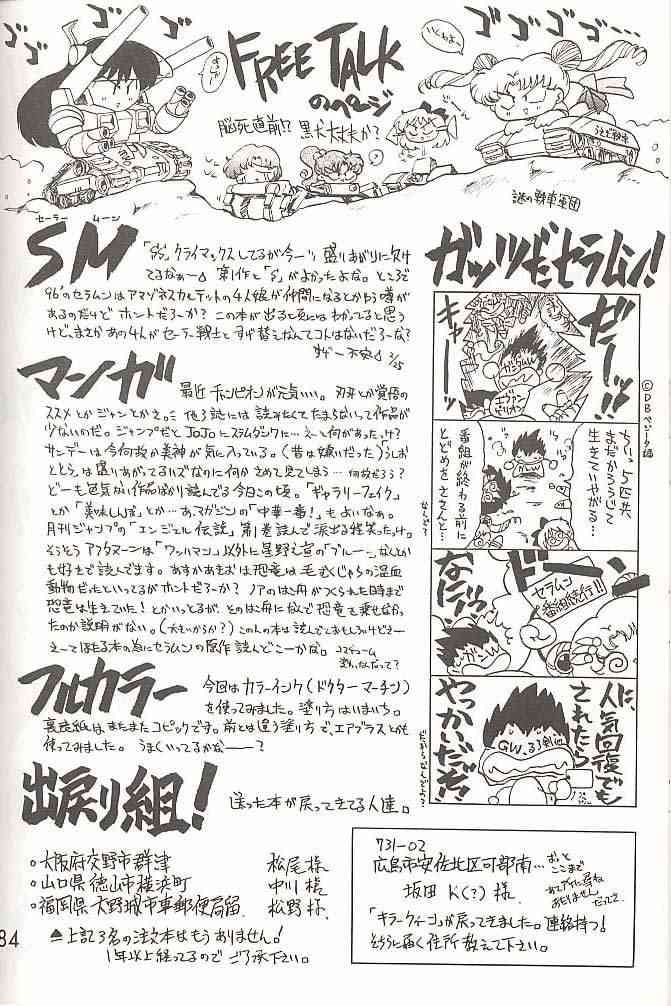 ゴゴゴ
FREE TALK
のページ
脳死直前!? 黒犬大丈夫か?
ゴゴゴゴ
謎の戦車軍団
セーラー ムーン
SM
「S」がよかったよな。ところで
96'のセラムンはアマゾネスカルテットの4人娘が仲間になるとかゆう噂が
あるのだけど ホントだろーか? この本が出る頃にはわかってると思う
けど、まさかあの4人がセーラー戦士とすげ替えなんてコトはないだろーな?
マンガ
最近チャンピオンが元気いい。刃牙とか覚悟の
少ないのだ。ジャンプだとJoJoにスラムダンクに…え~と何があったっけ?
サンデーは今何故か美神が気に入っている。(昔は嫌いだった)うしお
ととらは盛りあがってるハズなのに何かさめて見てしまう…何故だろう?
どーも色気がない作品ばかり読んでる今日この頃。「ギャラリーフェイク」
とか「美味しんぼ」とか…あマガジンの「中華一番!」もよいなぁ。
月刊ジャンプの「エンジェル伝説」第1巻読んで涙出る程笑ったっけ。
そうそうアフタヌーンは「ワッハマン」以外に星野之宣の「ブルー
も好きで読んでます。あすかあきおは恐竜は毛むくじゃらの温血
動物だったといってるがホントだろーか? ノアのはこ舟がつくられた時まで
恐竜は生きていた! とかいっとるが、そのはこ舟になんで恐竜を乗せなかっ
たのか説明がない。(大きいからか?)この人の本は読んでておもしろいけどさー
フルカラー
今回はカラーインク(ドクターマーチン)
を使ってみました。塗り方はいまいち。
裏表紙はまたまたコピックです。前とは違う塗り方で、エアブラスとかも
使ってみました。うまくいってるかな――?
出戻り組!
送った本が戻ってきてる人達。
○大阪府交野市群津 松尾様
○山口県徳山市横浜町 中川様
○福岡県大野城市東郵便局留 松野様
▲上記3名の注文本はもうありません!
1年以上経ってるのでご了承下さい。
731-02
広島市安佐北区可部南…
坂田K(?)様
が戻ってきました。連絡待つ!
そちらに届く住所教えて下さい。
ガッツだセラムン!
©DBベジータ編
ゼーッ!!
キャー
エヴァンゲリオン
ちいっ5匹共
まだかろうじて
生きていやがる…
番組が終わる前に
とどめをささんと…
ドーン
セラムン
番組続行!!
なにィッ
人気回復でも
されたら
やっかいだぞ!
84